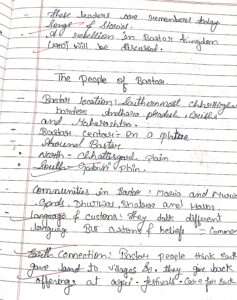 - These leaders are remembered today
songs & stories.
- A rebellion in Bastar kingdom
(1910) will be discussed.
The People of Bastar.
- Bastar location: Southernmost chhattisgarh
borders Andhra pradesh,
and Maharashtra.
- Bastar central: On a plateau
- Around Bastar
North - Chhattisgarh plain
South - Godavari plain.
- Communities in Bastar: Maria and Muria
Gonds, Dhurwas, Bhatras and Halbas.
- language & customs: They talk different
language. But customs & beliefs - common
- Earth connection: Bastar people think Earth
gave land to villages so they give back
offerings at agri. festivals. Care for